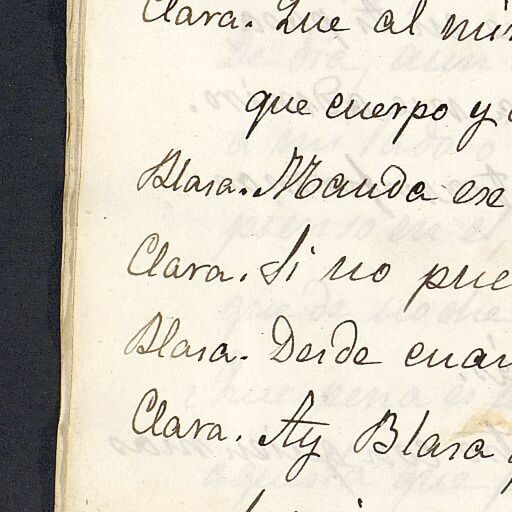 Clara. Que al
que cuerpo y
Blasa. Manda ese
Clara. Si no pue
Blasa. Desde cuan
Clara. Ay Blasa